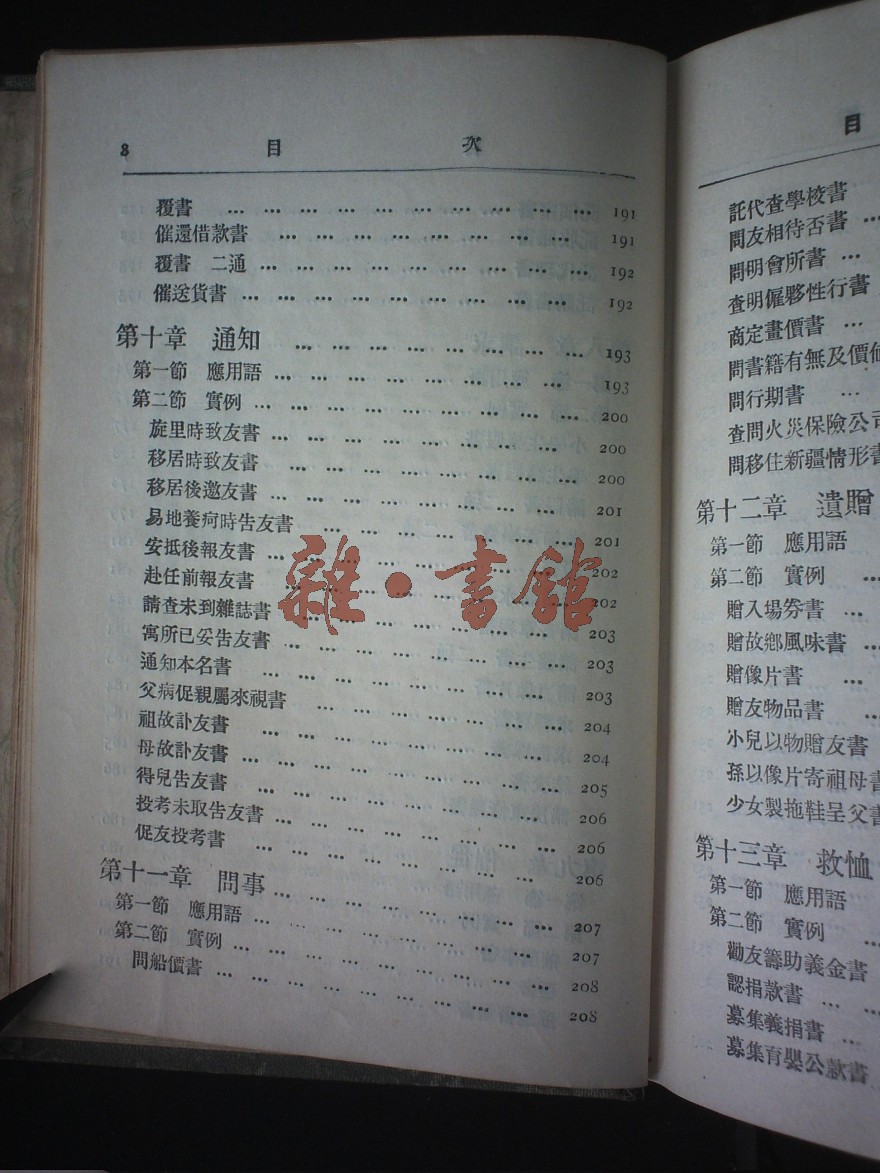 8 目 次
覆書 … 191
催還借款書 … 191
覆書 二通 … 192
催送貨書 … 192
第十章 通知 … 193
第一節 應用語 … 193
第二節 實例 … 200
旋里時致友書 … 200
移居時致友書 … 200
移居後邀友書 … 201
易地養疴時告友書 … 201
安抵後報友書 … 202
赴任前報友書 … 202
請查未到雜誌書 … 203
寓所已妥告友書 … 203
通知本名書 … 203
父病促親屬來視書 … 204
祖故訃友書 … 204
母故訃友書 … 205
得兒告友書 … 206
投考未取告友書 … 206
促友投考書 … 206
第十一章 問事 … 207
第一節 應用語 … 207
第二節 實例 … 208
問船價書 … 208
雜·書館
目
託代查學校書
問友相待否書 …
問明會所書 …
查明僱夥性行書
商定畫價書 …
問書籍有無及價値
問行期書 …
查問火災保險公司
問移住新疆情形書
第十二章 遺贈
第一節 應用語
第二節 實例 …
贈入場券書 …
贈故鄉風味書 …
贈像片書 …
贈友物品書 …
小兒以物贈友書
孫以像片寄祖母書
少女製拖鞋呈父書
第十三章 救恤
第一節 應用語
第二節 實例 …
勸友籌助義金書
認捐款書 …
募集義捐書 …
募集育嬰公款書